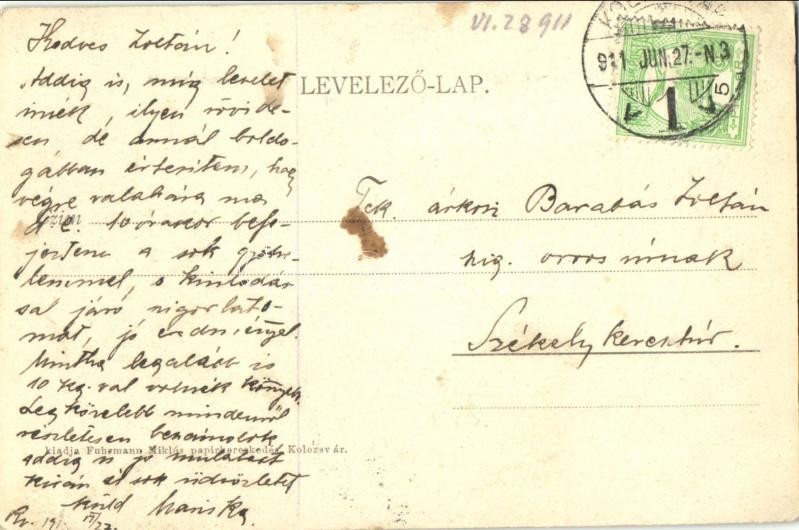 VI. 28 911
Kedves Zoltán!
Addig is, míg levelet
irnék, ilyen rövide-
sen, de annál boldo-
gabban értesítem, hogy
végre valahára ma
d. e. 10 órakor befe-
jeztem a sok
lemmel, s kinlódás
sal járó rigorosato-
mat, jó eredménynyel.
Mintha legalább is
10 kg.-val volnék könyebb.
Legközelebb mindenről
részletesen beszámolok
addig is jó mulatást
kíván és sok üdvözletet
küld Mariska
LEVELEZŐ-LAP.
911 JUN.27.-N.3
1
5
Tek. árkosi Barabás Zoltán
szig. orvos úrnak
Székelykeresztúr.
kiadja Fuhrmann Miklós papirkereskedés Kolozsvár.